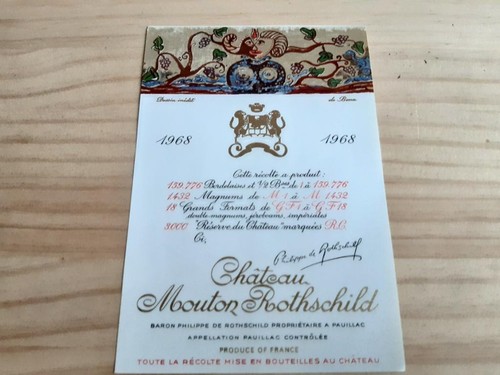 Dessin inédit de Bona
1968 1968
Cette récolte a produit :
139.776 Bordelaises et 1/2 Bses de 1 à 139.776
1432 Magnums de M 1 à M 1432
18 Grands Formats de G F 1 à G F 18
double magnums, jéroboams, impériales
3000 "Réserve du Château" marquées R.C.
Ci,
Philippe de Rothschild
Château
Mouton Rothschild
BARON PHILIPPE DE ROTHSCHILD PROPRIÉTAIRE A PAUILLAC
APPELLATION PAUILLAC CONTRÔLÉE
PRODUCE OF FRANCE
TOUTE LA RÉCOLTE MISE EN BOUTEILLES AU CHÂTEAU